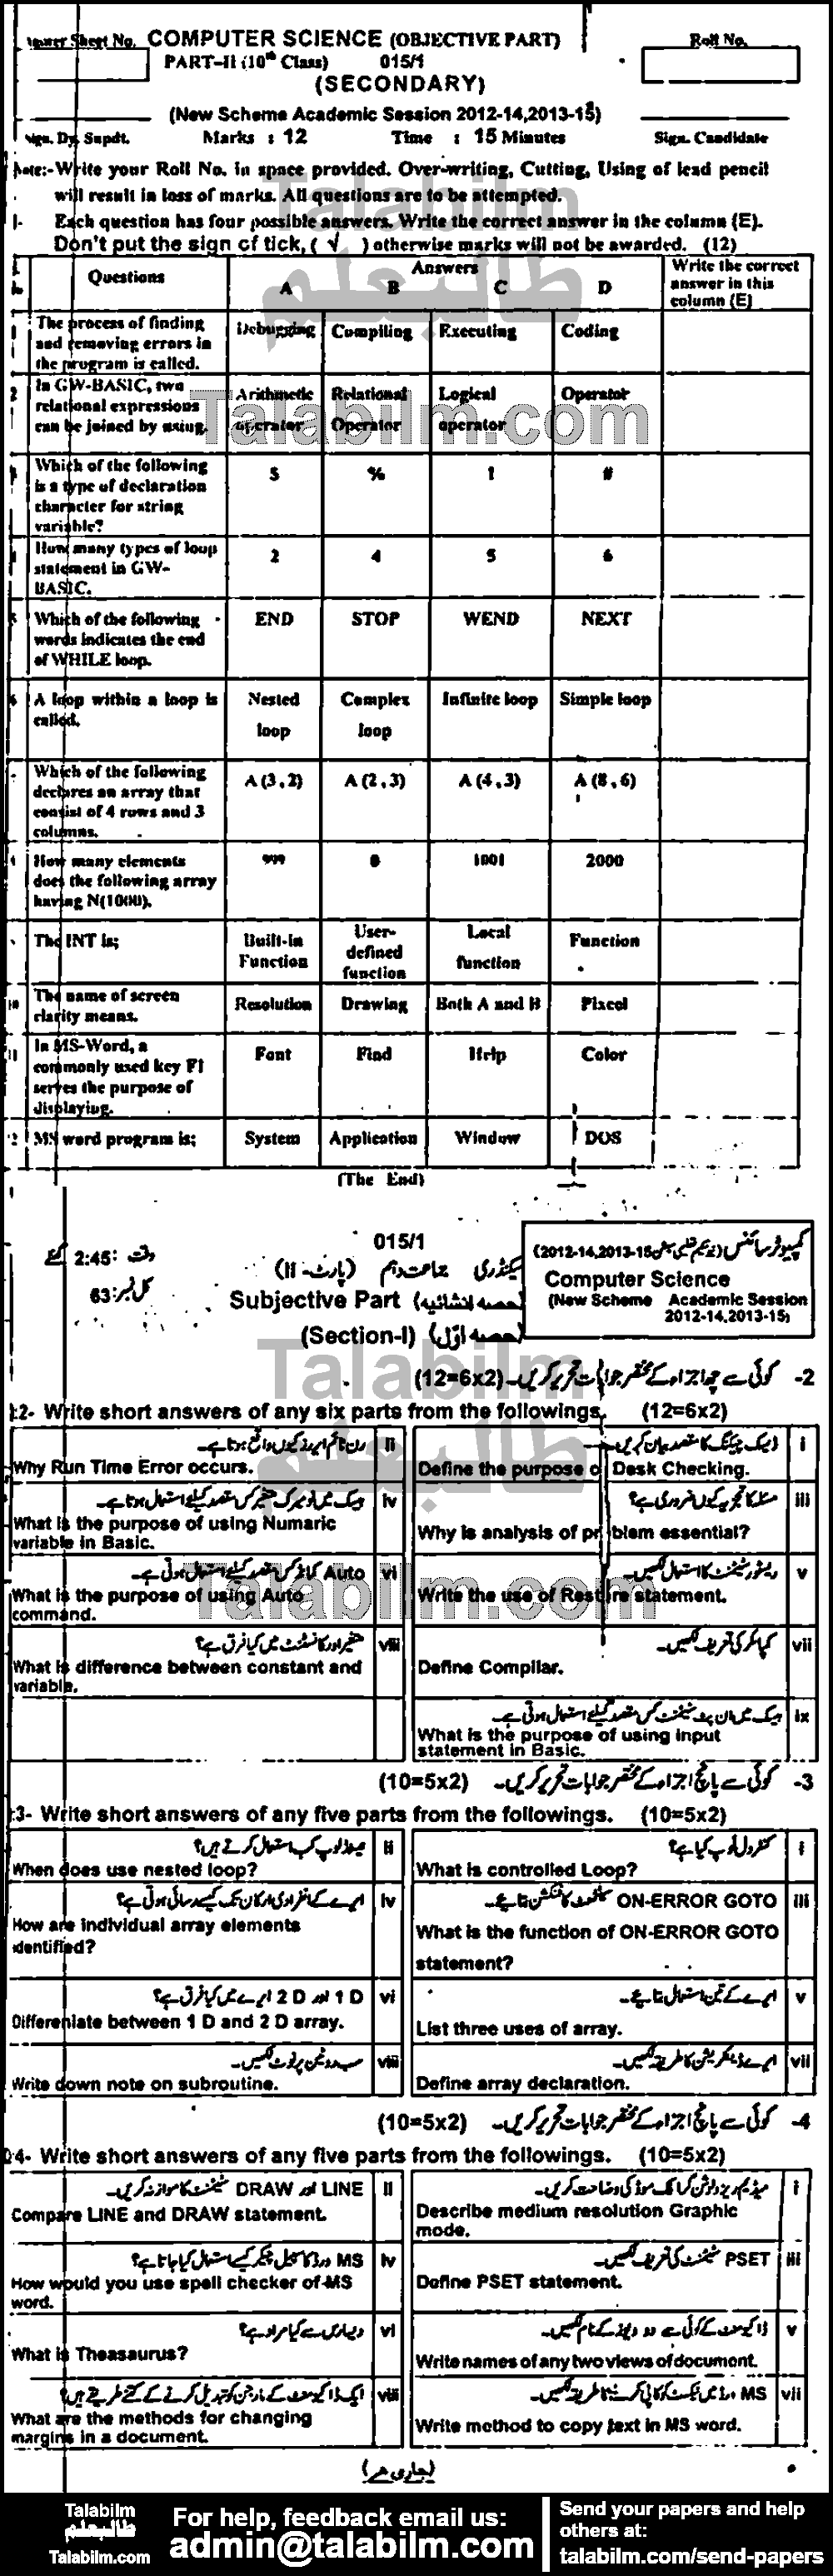 Answer Sheet No. COMPUTER SCIENCE (OBJECTIVE PART) Roll No.
PART-II (10th Class) 015/1
(SECONDARY)
(New Scheme Academic Session 2012-14,2013-15)
Sign. Dy. Supdt. Marks : 12 Time : 15 Minutes Sign. Candidate
Note:- Write your Roll No. in space provided. Over-writing, Cutting, Using of lead pencil
will result in loss of marks. All questions are to be attempted.
Each question has four possible answers. Write the correct answer in the column (E).
Don't put the sign of tick, ( √ ) otherwise marks will not be awarded. (12)
Talabilm
طالبعلم
Talabilm.com
Questions Answers Write the correct answer in this column (E)
A B C D
The process of finding and removing errors in the program is called. Debugging Compiling Executing Coding
2 In GW-BASIC, two relational expressions can be joined by using. Arithmetic operator Relational Operator Logical operator Operator
Which of the following is a type of declaration character for string variable? % ! #
How many types of loop statement in GW-BASIC. 2 4 5 6
Which of the following words indicates the end of WHILE loop. END STOP WEND NEXT
A loop within a loop is called. Nested loop Complex loop Infinite loop Simple loop
Which of the following declares an array that consist of 4 rows and 3 columns. A (3 , 2) A (2 , 3) A (4 , 3) A (8 , 6)
How many elements does the following array having N(1000). 999 0 1001 2000
The INT is; Built-in Function User-defined function Local function Function
10 The name of screen clarity means. Resolution Drawing Both A and B Pixcel
11 In MS-Word, a commonly used key F1 serves the purpose of displaying. Font Find Color
2 MS word program is; System Application Window DOS
(The End)
وقت : 2:45 گھنٹے 015/1 کمپیوٹر سائنس (نیو سکیم تعلیمی سیشن 2012-14,2013-15)
کل نمبر: 63 سیکنڈری جماعت دہم (پارٹ - II) Computer Science
Subjective Part (حصہ انشائیہ) (New Scheme Academic Session
2012-14,2013-15)
(Section-I) (حصہ اوّل)
Talabilm
طالبعلم
Talabilm.com
2- کوئی سے چھ اجزاء کے مختصر جوابات تحریر کریں۔ (12=6x2)
2- Write short answers of any six parts from the followings. (12=6x2)
i ڈیسک چیکنگ کا مقصد بیان کریں۔
Define the purpose of Desk Checking.
ii رن ٹائم ایررز کیوں واقع ہوتا ہے۔
Why Run Time Error occurs.
iii مسئلہ کا تجزیہ کیوں ضروری ہے؟
Why is analysis of problem essential?
iv بیسک میں نومیرک متغیر کس مقصد کیلئے استعمال ہوتا ہے۔
What is the purpose of using Numaric
variable in Basic.
v ریسٹور سٹیٹمنٹ کا استعمال لکھیں۔
Write the use of Restore statement.
vi Auto کمانڈ کس مقصد کیلئے استعمال ہوتی ہے۔
What is the purpose of using Auto
command.
vii کمپائلر کی تعریف لکھیں۔
Define Compilar.
viii متغیر اور کانسٹنٹ میں کیا فرق ہے؟
What is difference between constant and
variable.
ix بیسک میں ان پٹ سٹیٹمنٹ کس مقصد کیلئے استعمال ہوتی ہے۔
What is the purpose of using input
statement in Basic.
3- کوئی سے پانچ اجزاء کے مختصر جوابات تحریر کریں۔ (10=5x2)
3- Write short answers of any five parts from the followings. (10=5x2)
i کنٹرول لوپ کیا ہے؟
What is controlled Loop?
ii نیسٹڈ لوپ کب استعمال کرتے ہیں؟
When does use nested loop?
iii ON-ERROR GOTO سٹیٹمنٹ کا فنکشن بتائیے۔
What is the function of ON-ERROR GOTO
statement?
iv ارے کے انفرادی ارکان تک کیسے رسائی ہوتی ہے؟
How are individual array elements
identified?
v ارے کے تین استعمال بتائیے۔
List three uses of array.
vi 1 D اور 2 D ارے میں کیا فرق ہے؟
Differeniate between 1 D and 2 D array.
vii ارے ڈیکلریشن کا طریقہ لکھیں۔
Define array declaration.
viii سب روٹین پر نوٹ لکھیں۔
Write down note on subroutine.
4- کوئی سے پانچ اجزاء کے مختصر جوابات تحریر کریں۔ (10=5x2)
4- Write short answers of any five parts from the followings. (10=5x2)
i میڈیم ریزولوشن گرافک موڈ کی وضاحت کریں۔
Describe medium resolution Graphic
mode.
ii LINE اور DRAW سٹیٹمنٹ کا موازنہ کریں۔
Compare LINE and DRAW statement.
iii PSET سٹیٹمنٹ کی تعریف لکھیں۔
Define PSET statement.
iv MS ورڈ کا سپیل چیکر کیسے استعمال کیا جاتا ہے؟
How would you use spell checker of MS
word.
v ڈاکیومنٹ کے کوئی سے دو ویوز کے نام لکھیں۔
Write names of any two views of document.
vi تھیسارس سے کیا مراد ہے؟
What is Theasaurus?
vii MS ورڈ میں ٹیکسٹ کو کاپی کرنے کا طریقہ لکھیں۔
Write method to copy text in MS word.
viii ایک ڈاکیومنٹ کے مارجن کو تبدیل کرنے کے کتنے طریقے ہیں؟
What are the methods for changing
margins in a document.
(جاری ہے)
Talabilm
طالبعلم
Talabilm.com
For help, feedback email us:
admin@talabilm.com
Send your papers and help
others at:
talabilm.com/send-papers